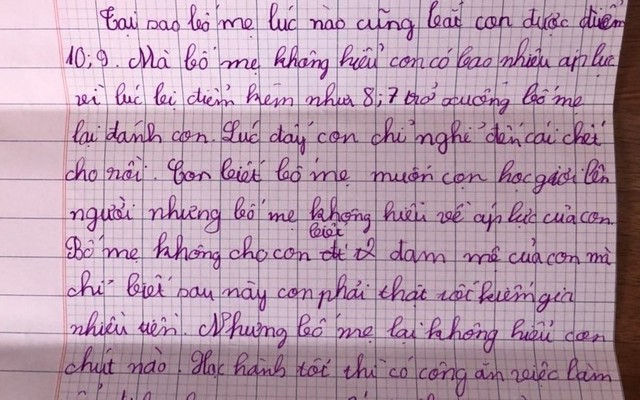 Tại sao bố mẹ lúc nào cũng bắt con được điểm
10; 9. Mà bố mẹ không hiểu con có bao nhiêu áp lực
vì lúc bị điểm kém như 8; 7 trở xuống bố mẹ
lại đánh con. Lúc đấy con chỉ nghĩ đến cái chết
cho rồi. Con biết bố mẹ muốn con học giỏi lên
người nhưng bố mẹ không hiểu về áp lực của con.
Bố mẹ không cho con biết đam mê của con mà
chỉ biết sau này con phải thật tốt kiếm
nhiều tiền. Nhưng bố mẹ lại không hiểu con
chút nào. Học hành tốt thì có công ăn việc làm